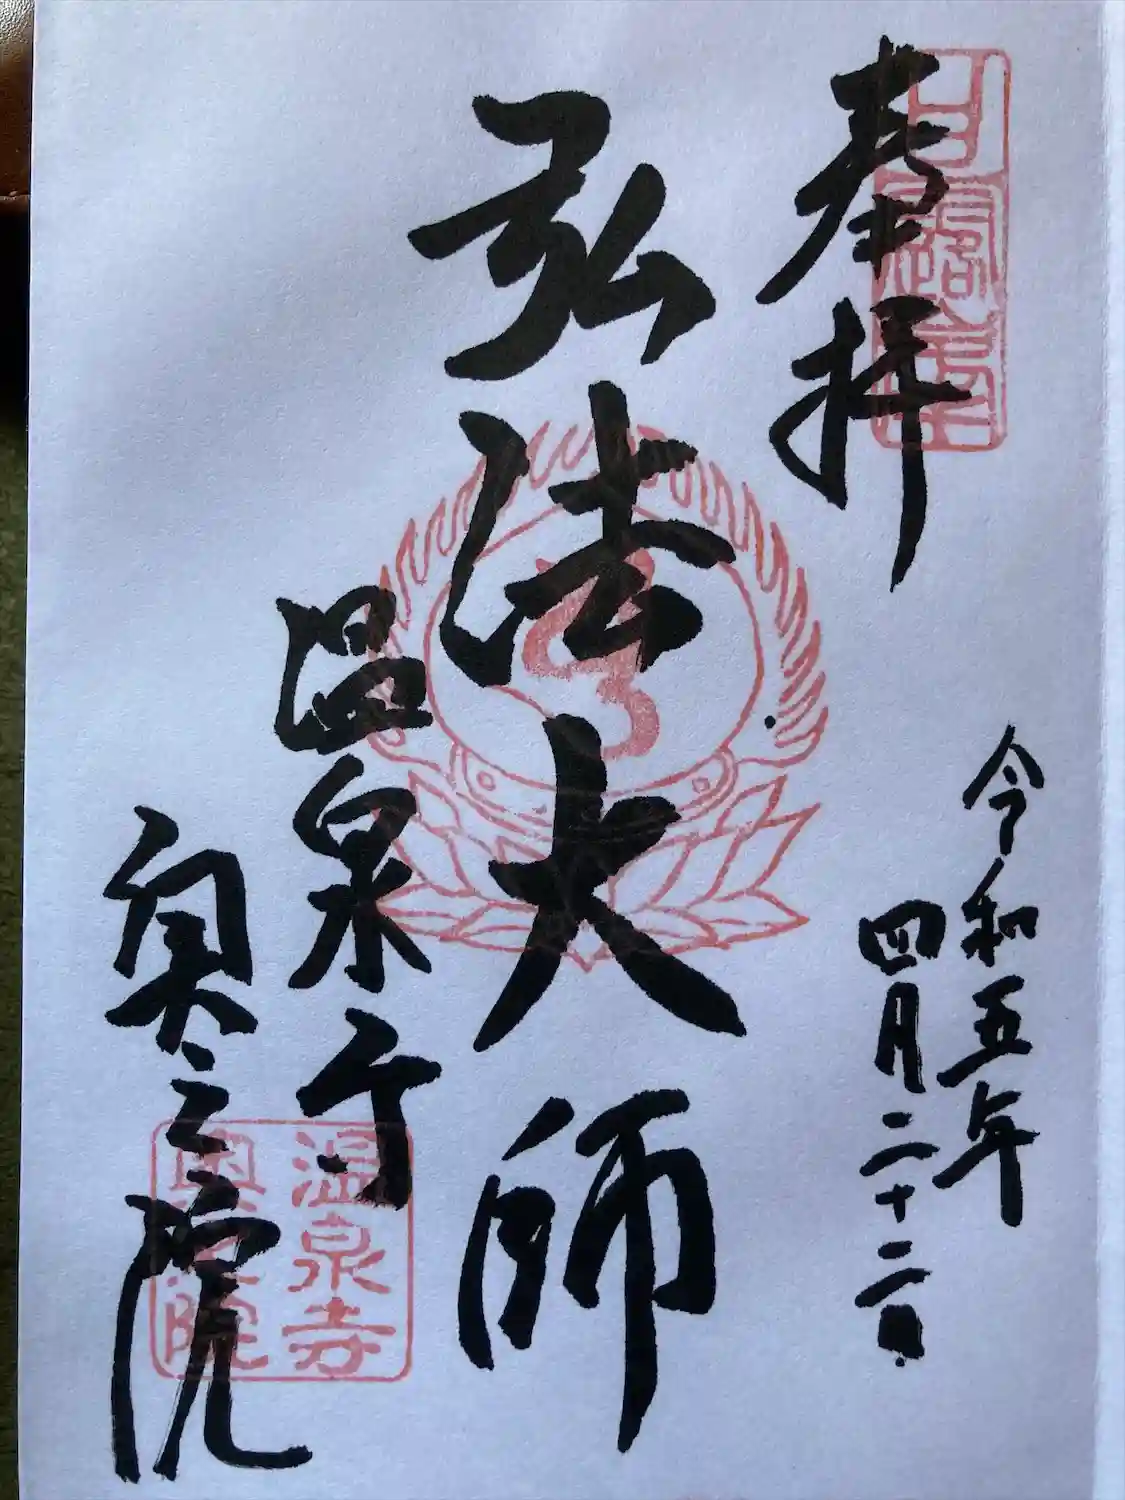 奉拝
令和五年
四月二十二日
弘法大師
温泉寺
奥之院
温泉寺
奥之院